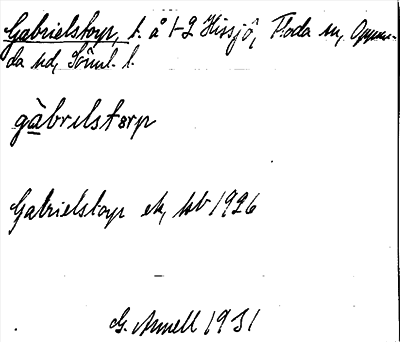 Gabrielstorp, t. å 1-2 Hissjö, Floda sn, Oppun-
da hd, Söml. l.
gàbrɩlstorp
Gabrielstorp ek, kbl 1926
G. Annell 1931